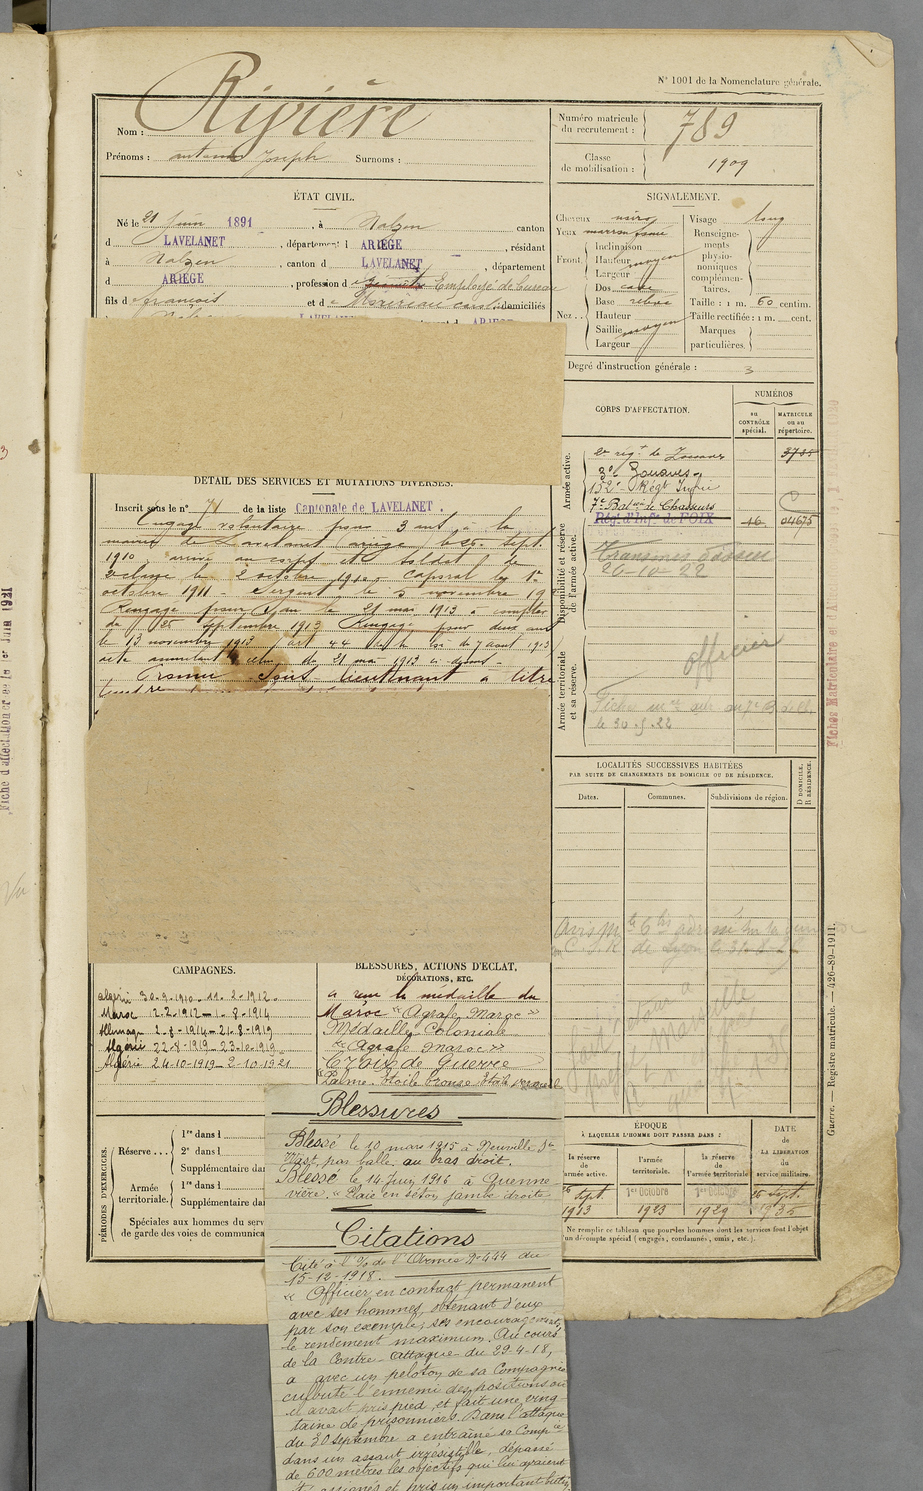 N° 1001 de la Nomenclature générale.
Nom : Rivière
Prénoms : Joseph Surnoms :
Numéro matricule du recrutement : 789
Classe de mobilisation : 1909
ÉTAT CIVIL.
Né le 21 Juin 1891, à Nalzen canton
d LAVELANET, département d ARIÈGE, résidant
à Nalzen, canton d LAVELANET, département
d ARIÈGE, profession d Employé de bureau
fils d François et d domiciliés
SIGNALEMENT.
Cheveux noirs
Yeux marron
Front. Inclinaison
Hauteur moyen
Largeur
Nez.. Dos cave
Base relevé
Hauteur
Saillie moyen
Largeur
Visage long
Renseignements physionomiques complémentaires.
Taille : 1 m. 60 centim.
Taille rectifiée : 1 m. cent.
Marques particulières.
Degré d'instruction générale : 3
CORPS D'AFFECTATION.
NUMÉROS
au CONTRÔLE spécial.
MATRICULE ou au répertoire.
Armée active.
2e rég.t de Zouaves
3e Zouaves
152e Régt Infrie
7e Bat. de Chasseurs
Disponibilité et réserve de l'armée active.
Rég. d'Inf. de FOIX 16 04675
Transmis dossier
20-10-22
Armée territoriale et sa réserve.
officier
le 30.5.22
DÉTAIL DES SERVICES ET MUTATIONS DIVERSES.
Inscrit sous le n° 71 de la liste Cantonale de LAVELANET.
Engagé volontaire pour 3 ans à la
mairie de Lavelanet ariège le 26 Sept.
1910 arrivé au corps et soldat de
2e classe le 2 octobre 1910. Caporal le 1er
octobre 1911 - Sergent le 5 novembre 19
Rengagé pour 1 an le 21 mai 1913 à compter
du 26 septembre 1913 Rengagé pour deux ans
le 13 novembre 1913 art 44 de la loi du 7 aout 1913
acte annulant celui du 21 mai 1913 ci-dessus -
Promu Sous-lieutenant à titre
LOCALITÉS SUCCESSIVES HABITÉES
PAR SUITE DE CHANGEMENTS DE DOMICILE OU DE RÉSIDENCE.
Dates. Communes. Subdivisions de région.
D DOMICILE.
R RÉSIDENCE.
CAMPAGNES.
Algérie 30-9-1910 - 11-2-1912.
Maroc 12-2-1912 - 1-8-1914
Allemagne 2-8-1914 - 21-8-1919
Algérie 22-8-1919 - 23-10-1919
Algérie 24-10-1919 - 2-10-1921
BLESSURES, ACTIONS D'ÉCLAT,
DÉCORATIONS, ETC.
a reçu la médaille du
Maroc "Agrafe Maroc"
Médaille Coloniale
"Agrafe Maroc"
Croix de Guerre
Palme. Etoile bronze Etoile vermeil
PÉRIODES D'EXERCICES.
Réserve... 1re dans l
2e dans l
Supplémentaire dan
Armée territoriale. 1re dans l
Supplémentaire dan
Spéciales aux hommes du serv
de garde des voies de communica
ÉPOQUE
À LAQUELLE L'HOMME DOIT PASSER DANS :
la réserve de l'armée active.
l'armée territoriale.
la réserve de l'armée territoriale
DATE de LA LIBÉRATION du service militaire.
26 Sept. 1913
1er Octobre 1923
1er Octobre 1929
26 Sept. 1935
Ne remplir ce tableau que pour les hommes dont les services font l'objet
d'un décompte spécial (engagés, condamnés, omis, etc.).
Guerre. — Registre matricule. — 426-89-1911.
Blessures
Blessé le 10 mars 1915 à Neuville St
Wast, par balle, au bras droit.
Blessé le 14 Juin 1916 à Quenne
vières, "Plaie en séton jambe droite
Citations
Cité à l'O. de l'Armée N° 444 du
15-12-1918.
"Officier en contact permanent
avec ses hommes, obtenant d'eux
par son exemple, ses encouragements,
le rendement maximum. Au cours
de la Contre-attaque du 29-4-18,
a avec un peloton de sa Compagnie
culbuté l'ennemi des positions où
il avait pris pied, et fait une cinq-
taine de prisonniers. Dans l'attaque
du 30 septembre a entraîné sa Comp.ie
dans un assaut irrésistible, dépassé
de 600 mètres les objectifs qui lui avaient
été assignés et pris un important butin